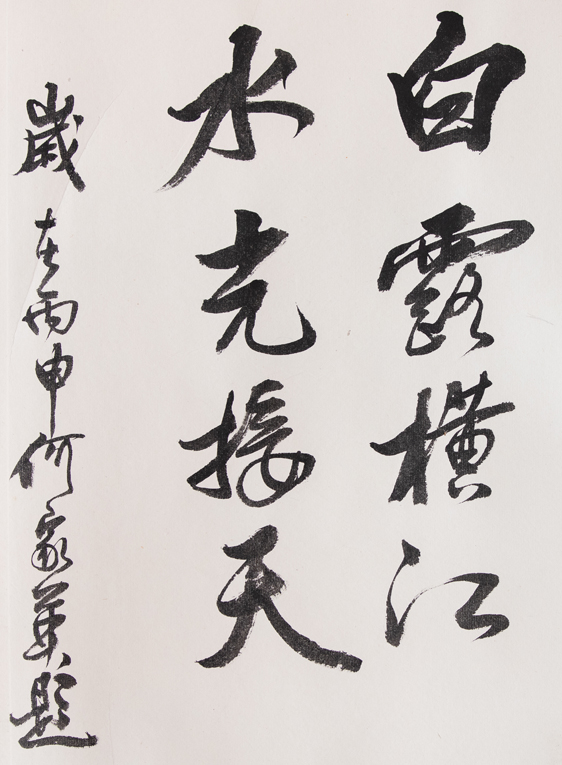 白露橫江
水光接天
歲在丙申何家英題